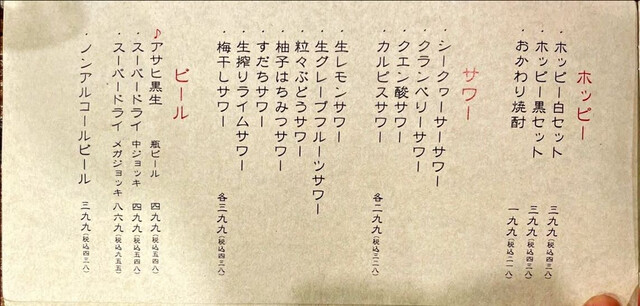 ホッピー
・ホッピー白セット 三九九(税込四三八)
・ホッピー黒セット 三九九(税込四三八)
・おかわり焼酎 一九九(税込二一八)
サワー
・シークヮーサーサワー
・クランベリーサワー
・クエン酸サワー
・カルピスサワー 各二九九(税込三二八)
・生レモンサワー
・生グレープフルーツサワー
・粒々ぶどうサワー
・柚子はちみつサワー
・すだちサワー
・生搾りライムサワー
・梅干しサワー 各三九九(税込四三八)
ビール
♪アサヒ黒生 瓶ビール 四九九(税込五四八)
・スーパードライ 中ジョッキ 四九九(税込五四八)
・スーパードライ メガジョッキ 八六九(税込九五五)
・ノンアルコールビール 三九九(税込四三八)